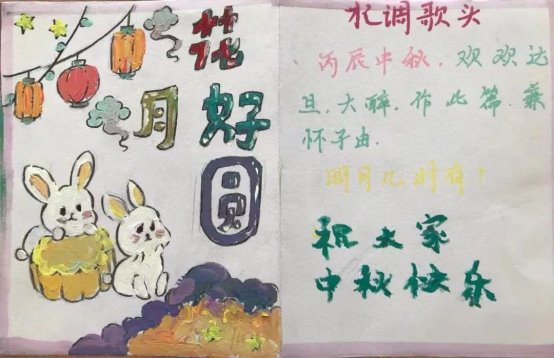 花好
月圆
水调歌头
丙辰中秋，欢欢达
旦，大醉，作此篇，兼
怀子由.
明月几时有！
祝大家
中秋快乐